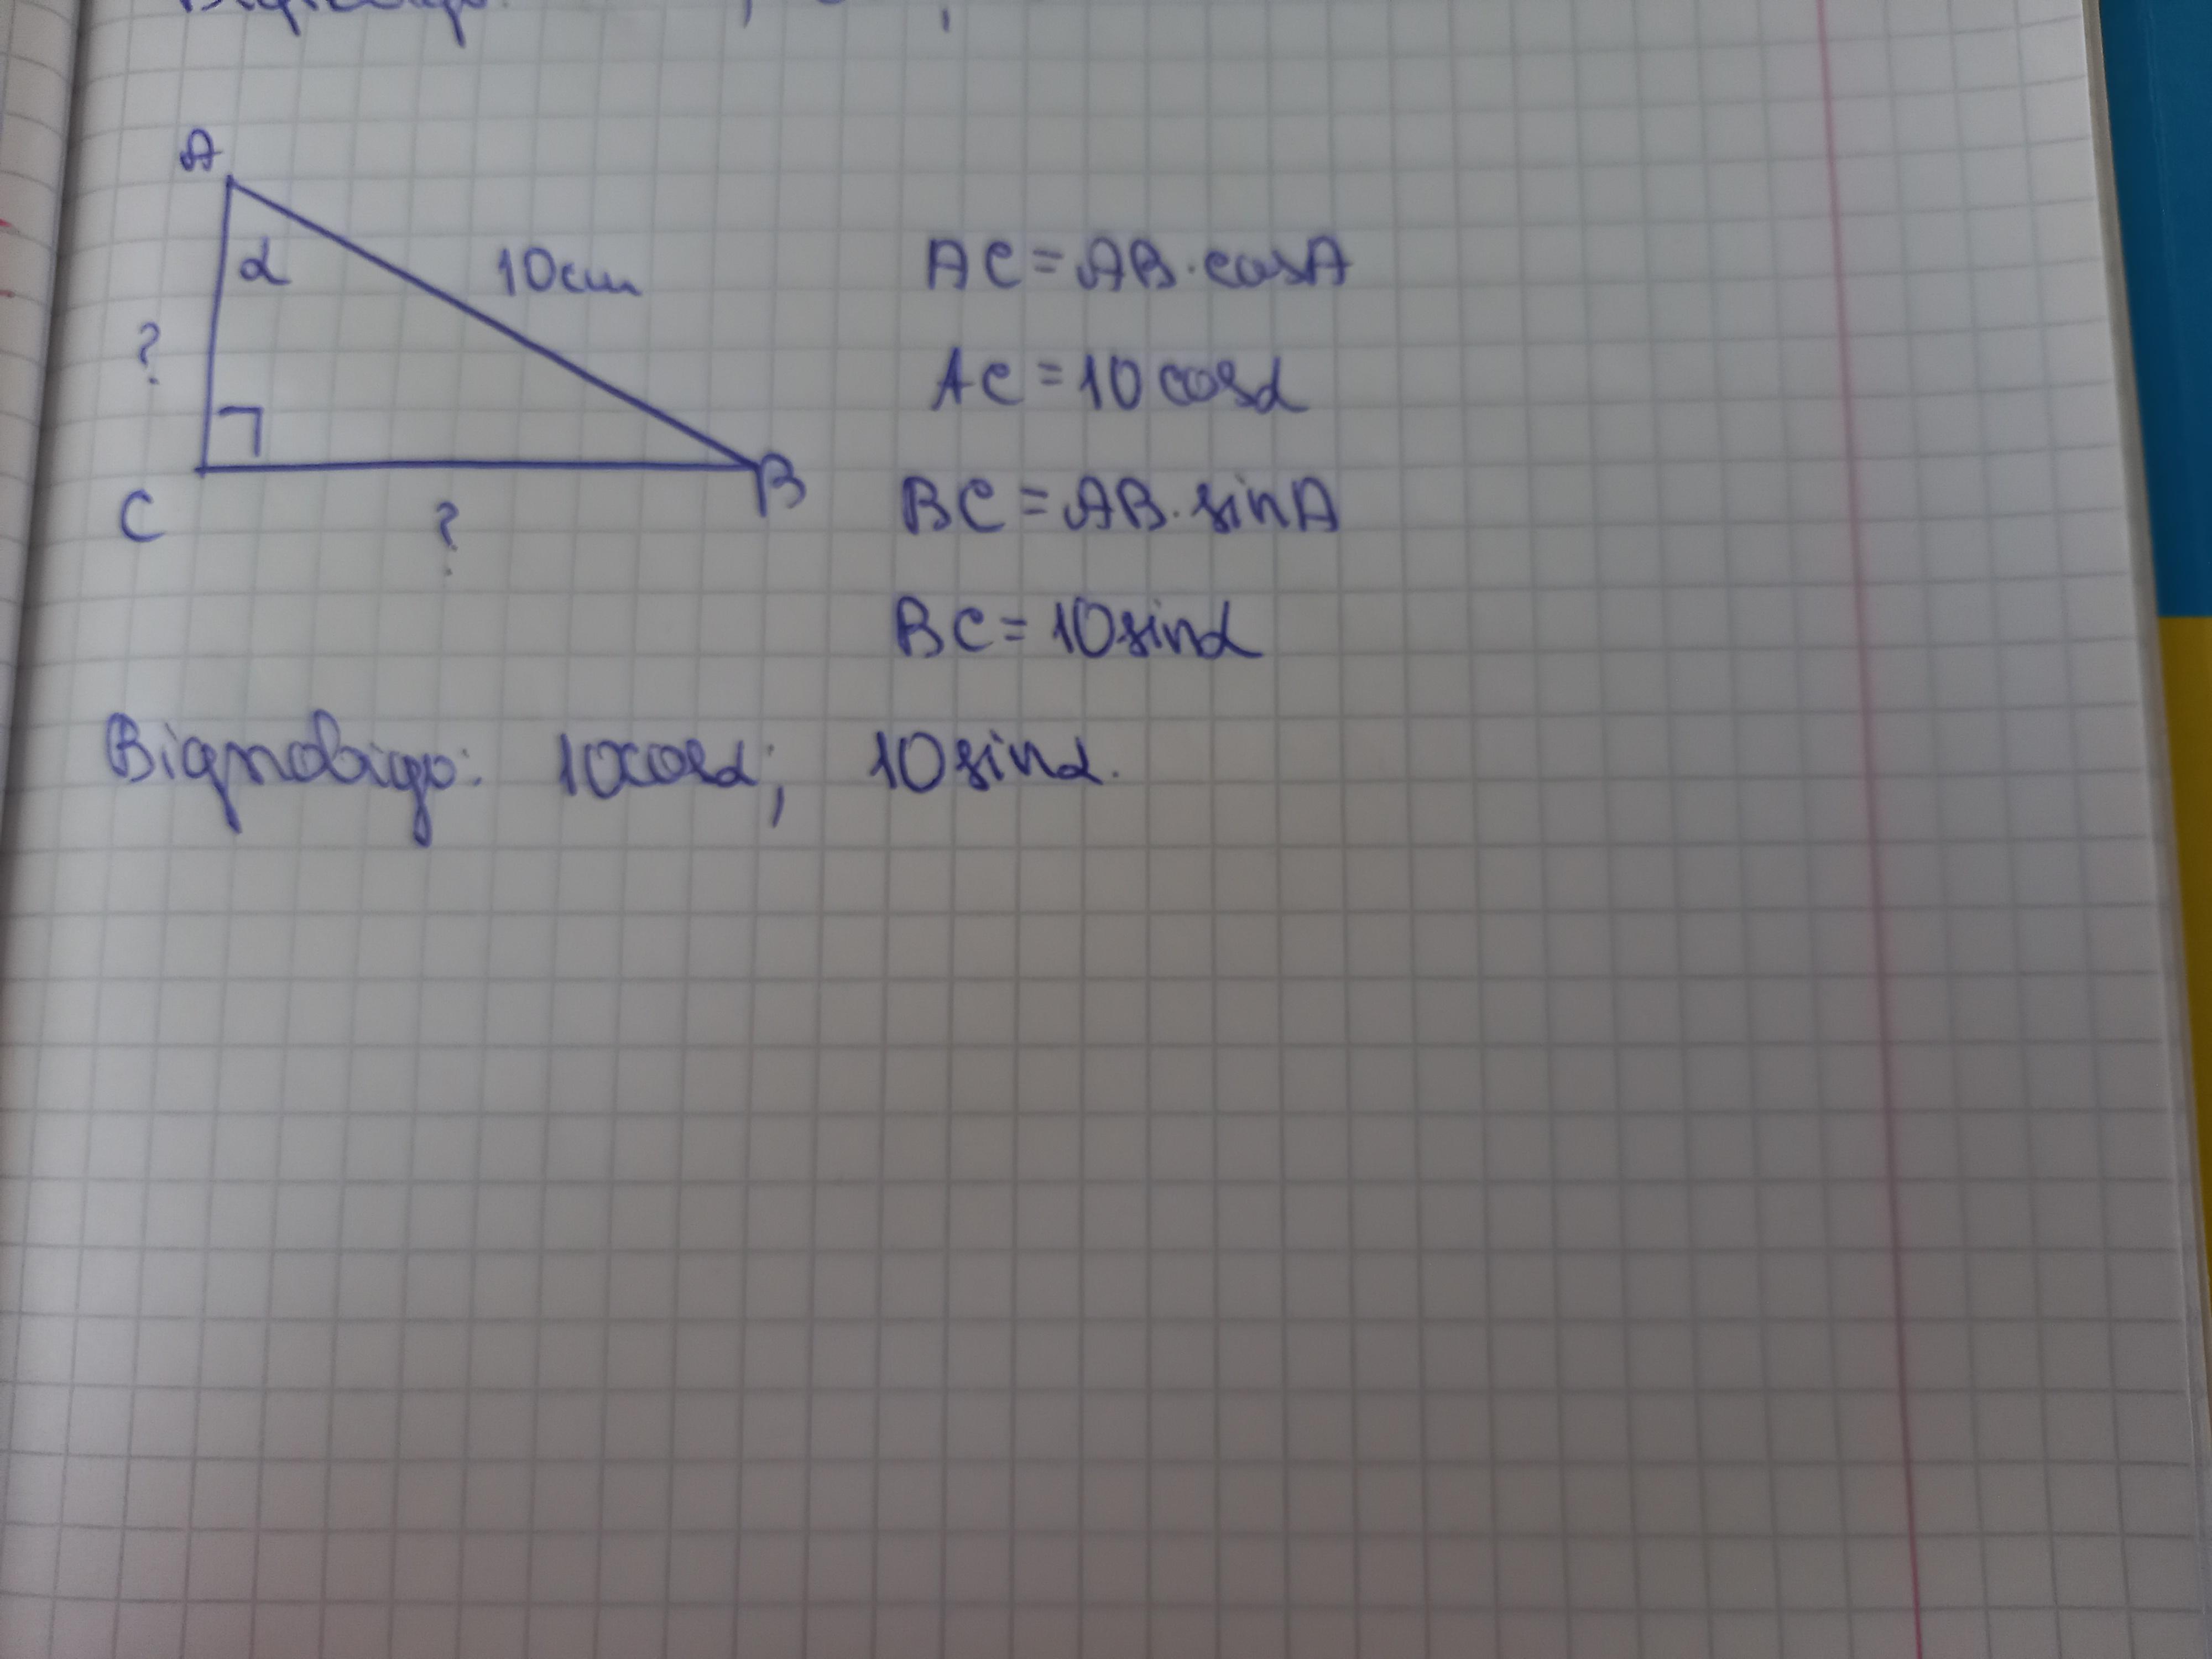 A
α
10см
?
C
?
B
AC = AB · cosA
AC = 10 cosα
BC = AB · sinA
BC = 10 sinα
Відповідь: 10cosα; 10 sinα.